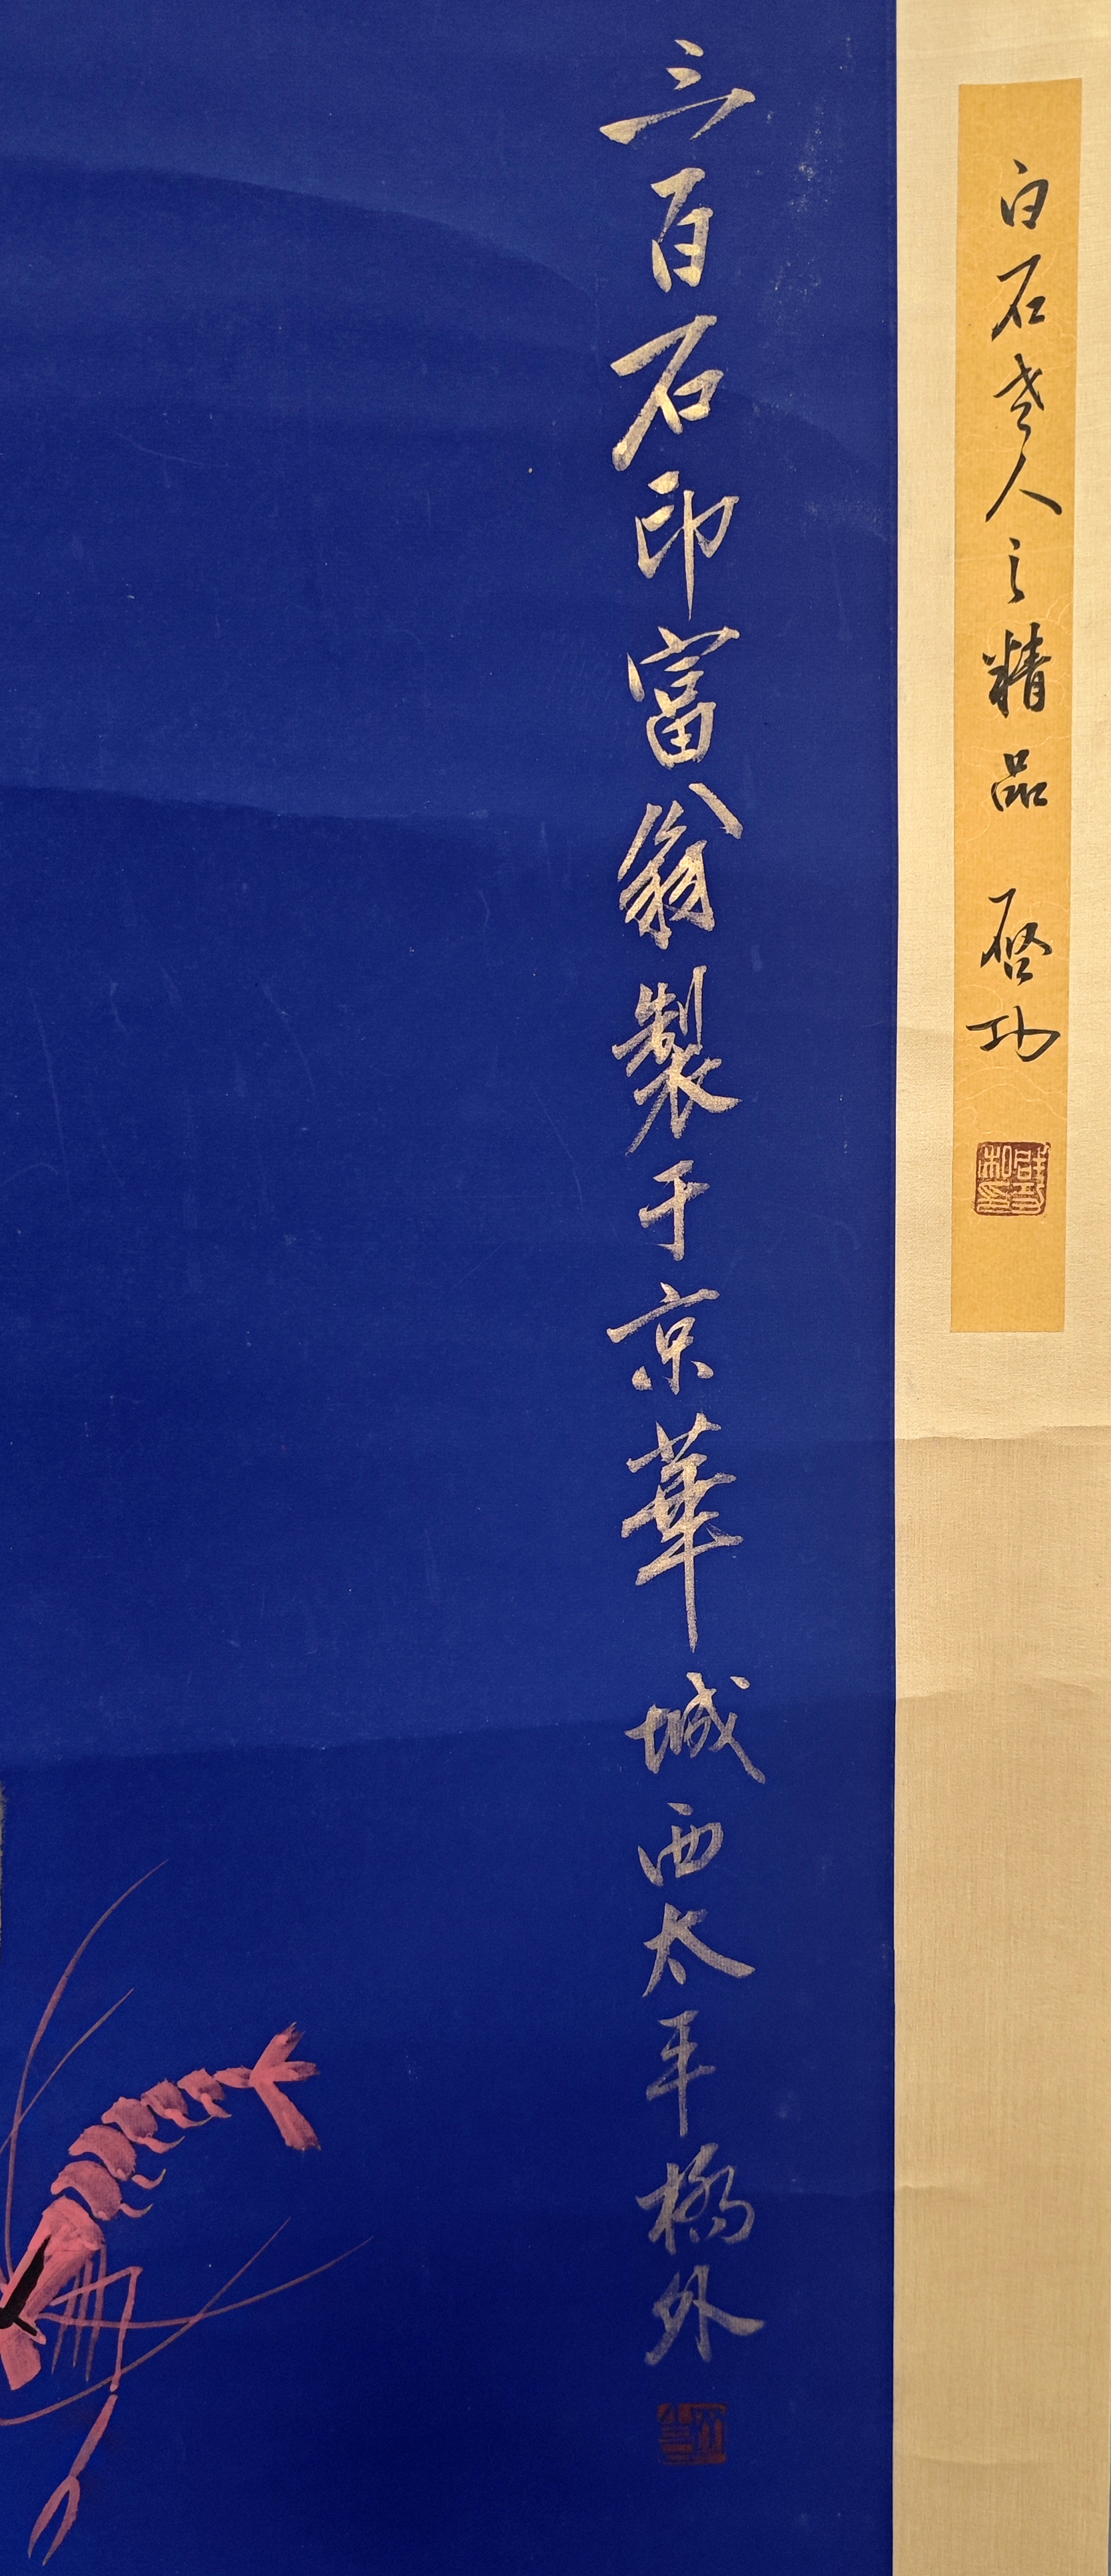 白石老人之精品 启功
三百石印富翁製于京華城西太平橋外